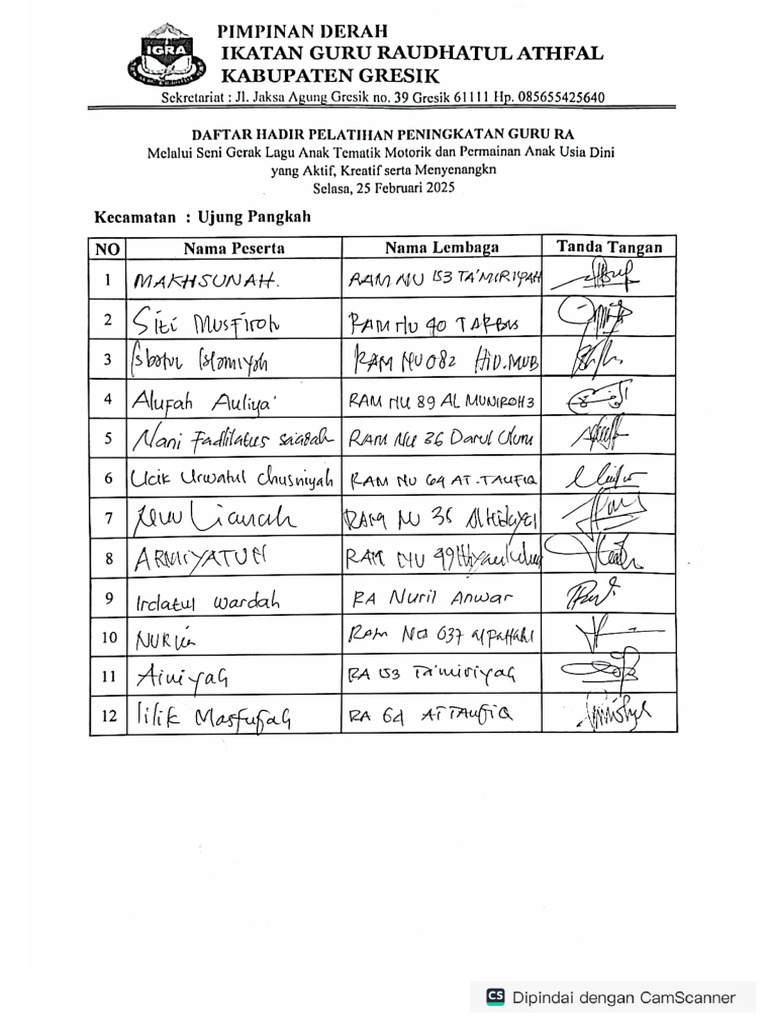 IGRA
PIMPINAN DERAH
IKATAN GURU RAUDHATUL ATHFAL
KABUPATEN GRESIK
Sekretariat : Jl. Jaksa Agung Gresik no. 39 Gresik 61111 Hp. 085655425640
DAFTAR HADIR PELATIHAN PENINGKATAN GURU RA
Melalui Seni Gerak Lagu Anak Tematik Motorik dan Permainan Anak Usia Dini
yang Aktif, Kreatif serta Menyenangkn
Selasa, 25 Februari 2025
Kecamatan : Ujung Pangkah
NO Nama Peserta Nama Lembaga Tanda Tangan
1 MAKHSUNAH. RAM NU 153 TA'MIRIYAH
2 Siti Musfiroh RAM NU 40 TARBUS
3 Isbatul Islamiyah RAM NU 082 HID.MUB
4 Alufah Auliya' RAM NU 89 AL MUNIROH 3
5 Nani Fadhilatus sa'adah RAM NU 36 Darul Ulum
6 Ucik Urwatul Chusniyah RAM NU 64 AT.TAUFIQ
7 RAM NU 35 Al Hidayah
8 ARMIYATUN RAM NU 99
9 Irdatul wardah RA Nuril Anwar
10 NURUL RAM NO 637
11 Ainiyah RA 153 Ta'miriyah
12 lilik Masfufah RA 64 AT TAUFIQ
CS Dipindai dengan CamScanner